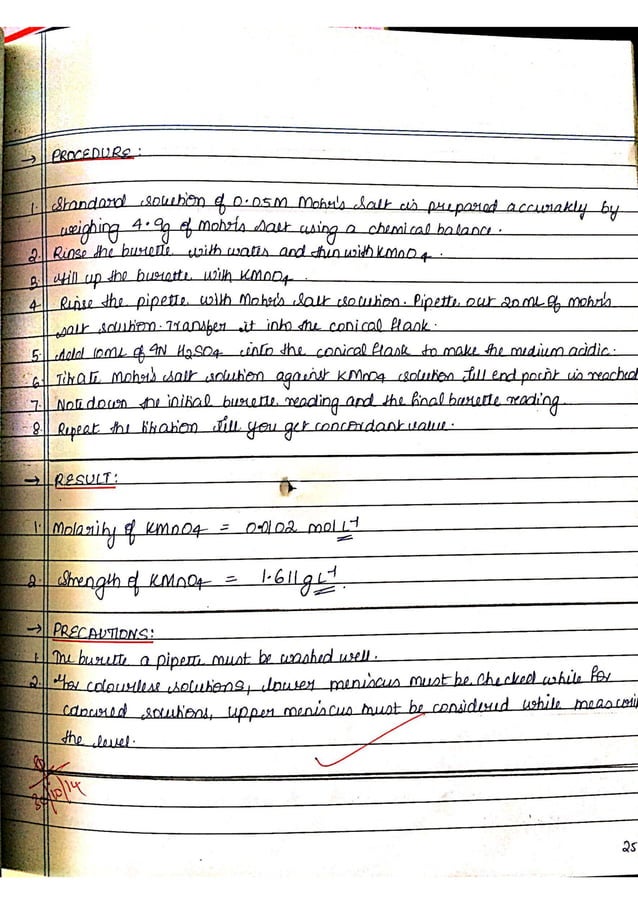 → PROCEDURE:
1. Standard solution of 0.05M Mohr's Salt is prepared accurately by
weighing 4.9g of Mohr's Salt using a chemical balance.
2. Rinse the burette with water and then with KMnO4.
3. Fill up the burette with KMnO4.
4. Rinse the pipette with Mohr's Salt solution. Pipette out 20mL of Mohr's
salt solution. Transfer it into the conical flask.
5. Add 10mL of 4N H2SO4 into the conical flask to make the medium acidic.
6. Titrate Mohr's Salt solution against KMnO4 solution till end point is reached
7. Note down the initial burette reading and the final burette reading.
8. Repeat the titration till you get concordant value.
→ RESULT:
1. Molarity of KMnO4 = 0.0102 mol L⁻¹
2. Strength of KMnO4 = 1.611 g L⁻¹
→ PRECAUTIONS:
1. The burette a pipette must be washed well.
2. For colourless solutions, lower meniscus must be checked while for
coloured solutions, upper meniscus must be considered while measuri
the level.
30/10/14
25